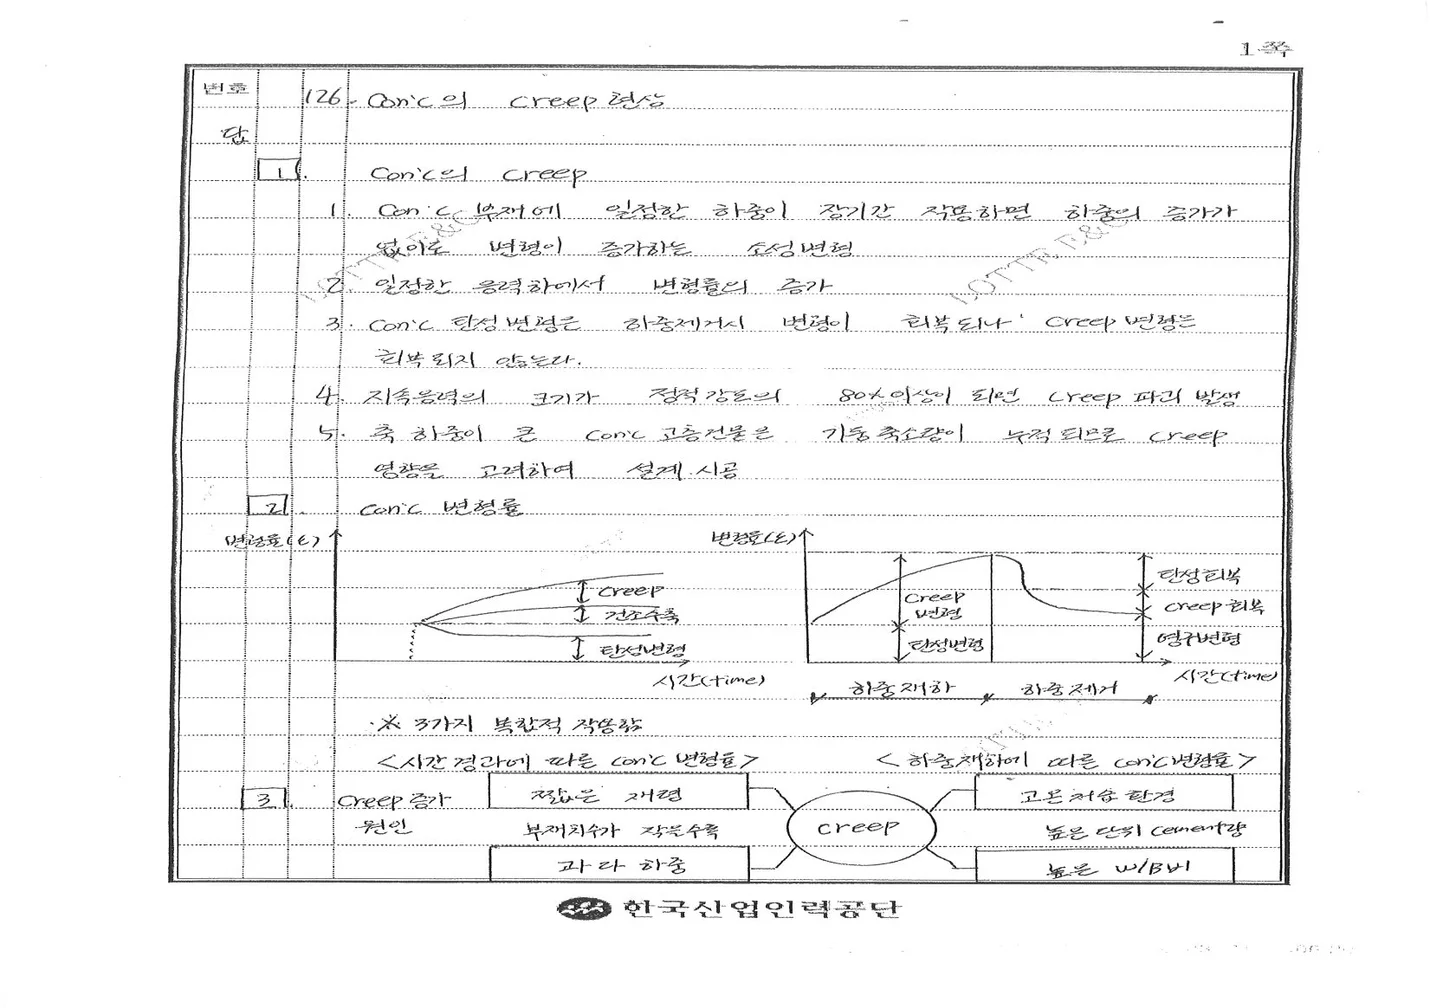 1쪽
번호 126. Con'c의 creep 현상
답
1. Con'c의 creep
1. Con'c 부재에 일정한 하중이 장기간 작용하면 하중의 증가가
없이도 변형이 증가하는 소성변형
2. 일정한 응력하에서 변형률의 증가
3. con'c 탄성변형은 하중제거시 변형이 회복되나, creep 변형은
회복되지 않는다.
4. 지속응력의 크기가 정적강도의 80% 이상이 되면 creep 파괴 발생
5. 축 하중이 큰 con'c 고층건물은 기둥축소량이 누적되므로 creep
영향을 고려하여 설계.시공
2. con'c 변형률
변형률(ε)
creep
건조수축
탄성변형
시간(time)
변형률(ε)
creep
변형
탄성변형
탄성회복
creep 회복
영구변형
시간(time)
하중재하 하중제거
※ 3가지 복합적 작용함
<시간경과에 따른 con'c 변형률> <하중재하에 따른 con'c변형률>
3. creep 증가
원인
짧은 재령
부재치수가 작을수록
과다 하중
creep
고온저습 환경
높은 단위 cement량
높은 W/B비
한국산업인력공단
LOTTE E&C
LOTTE E&C